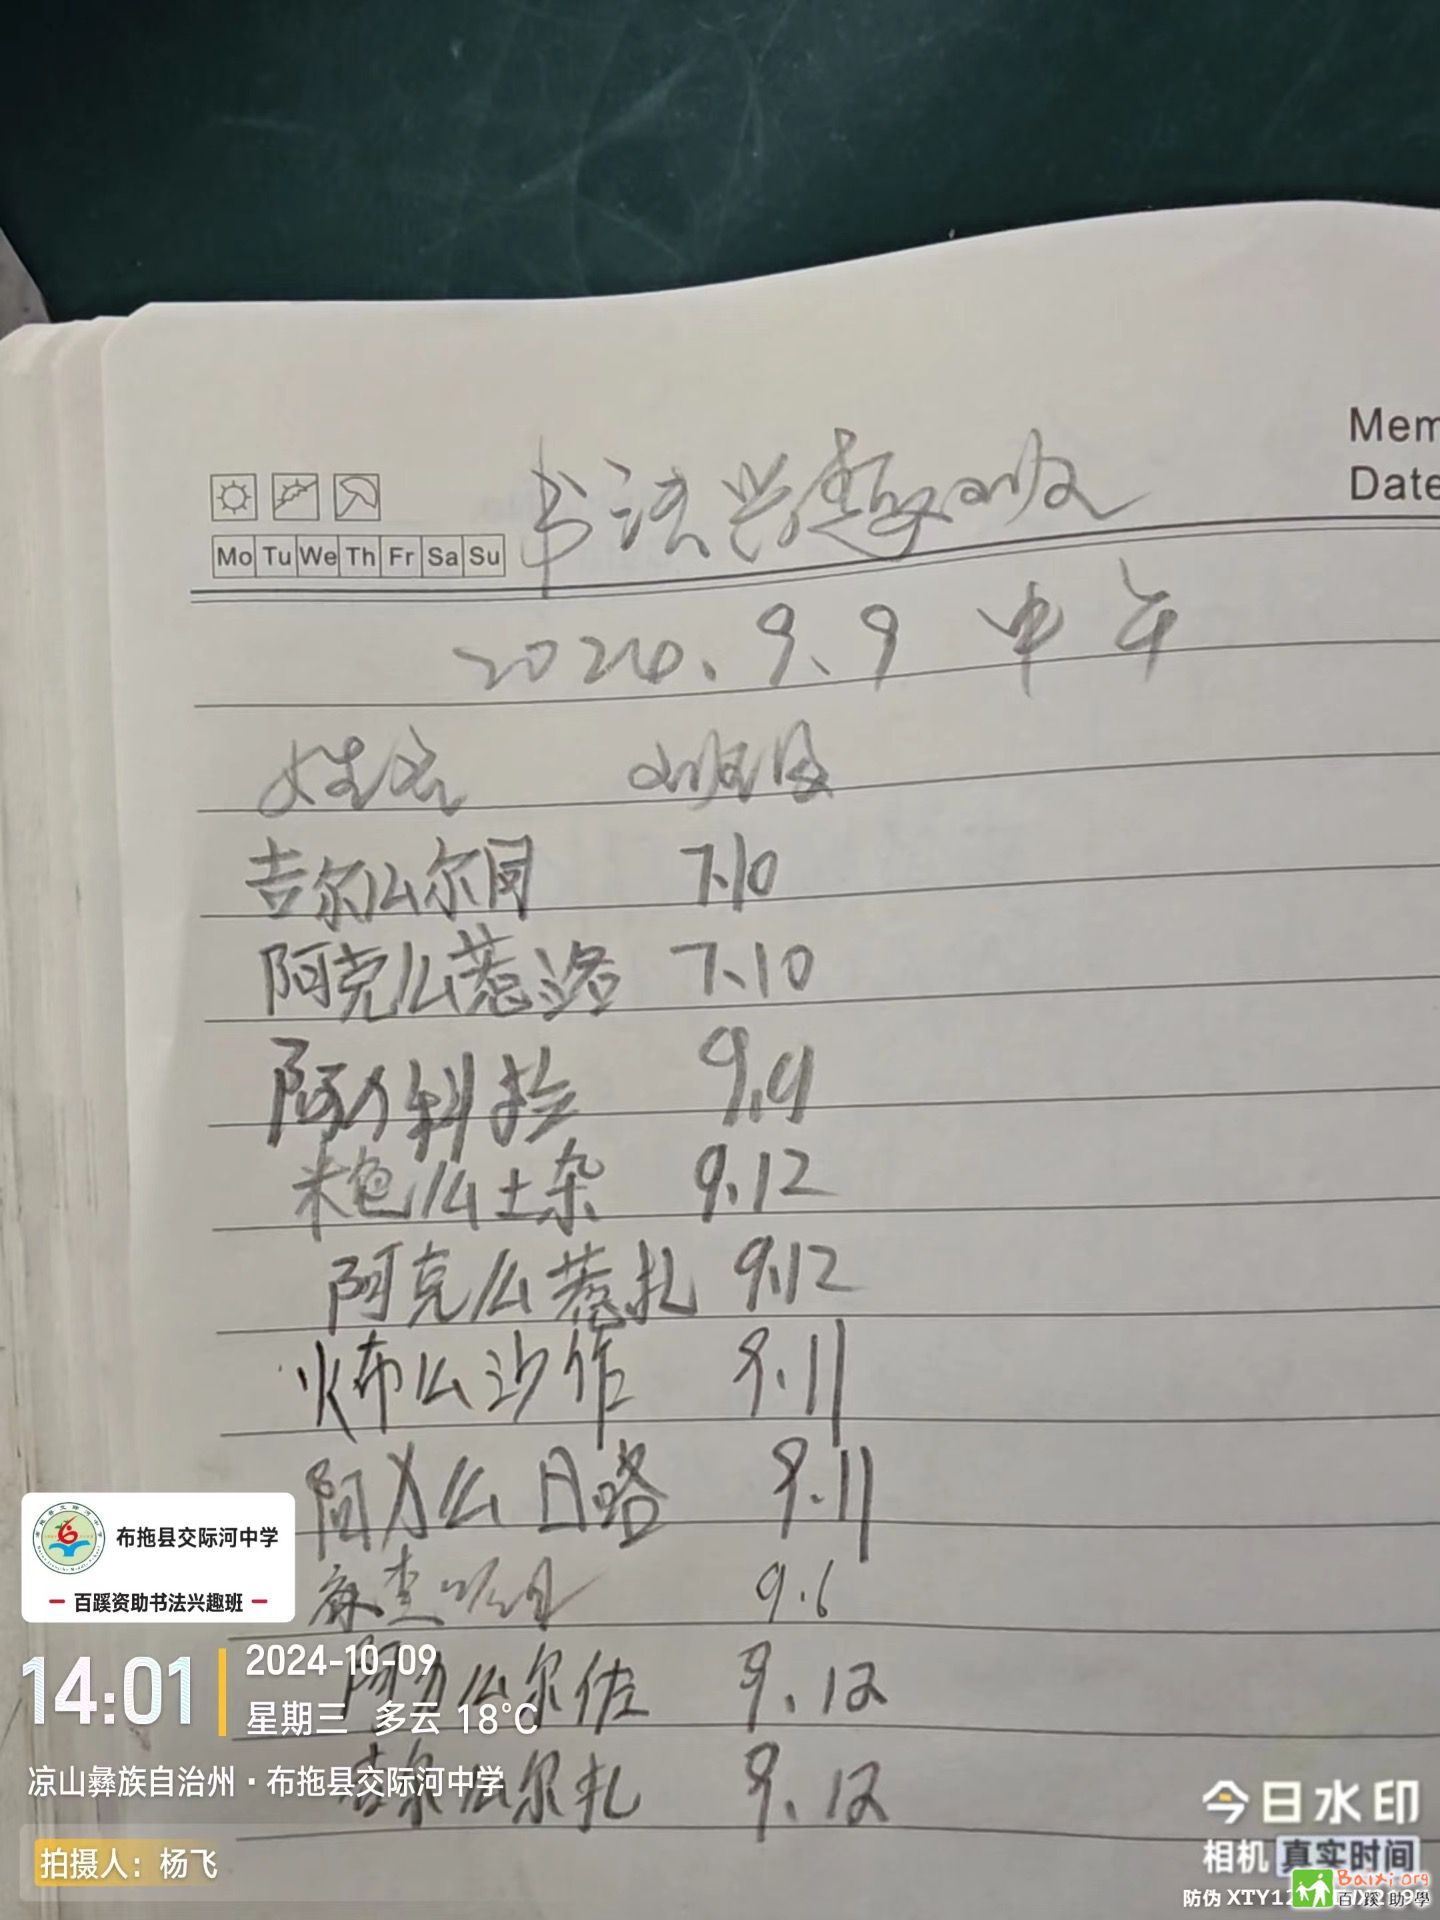 Mem
Date
书法兴趣班
Mo Tu We Th Fr Sa Su
2024.9.9 中午
姓名 班级
吉尔么尔 7.10
阿克么惹洛 7.10
阿力科 9.9
米色么土杂 9.12
阿克么惹扎 9.12
火布么沙作 9.11
阿力么日略 9.11
麻查 9.6
阿力么尔佐 9.12
吉尔么尔扎 9.12
布拖县交际河中学
百蹊资助书法兴趣班
14:01
2024-10-09
星期三 多云 18°C
凉山彝族自治州·布拖县交际河中学
拍摄人：杨飞
今日水印
相机 真实时间
防伪 XTY12
Baixi.org
百蹊助學